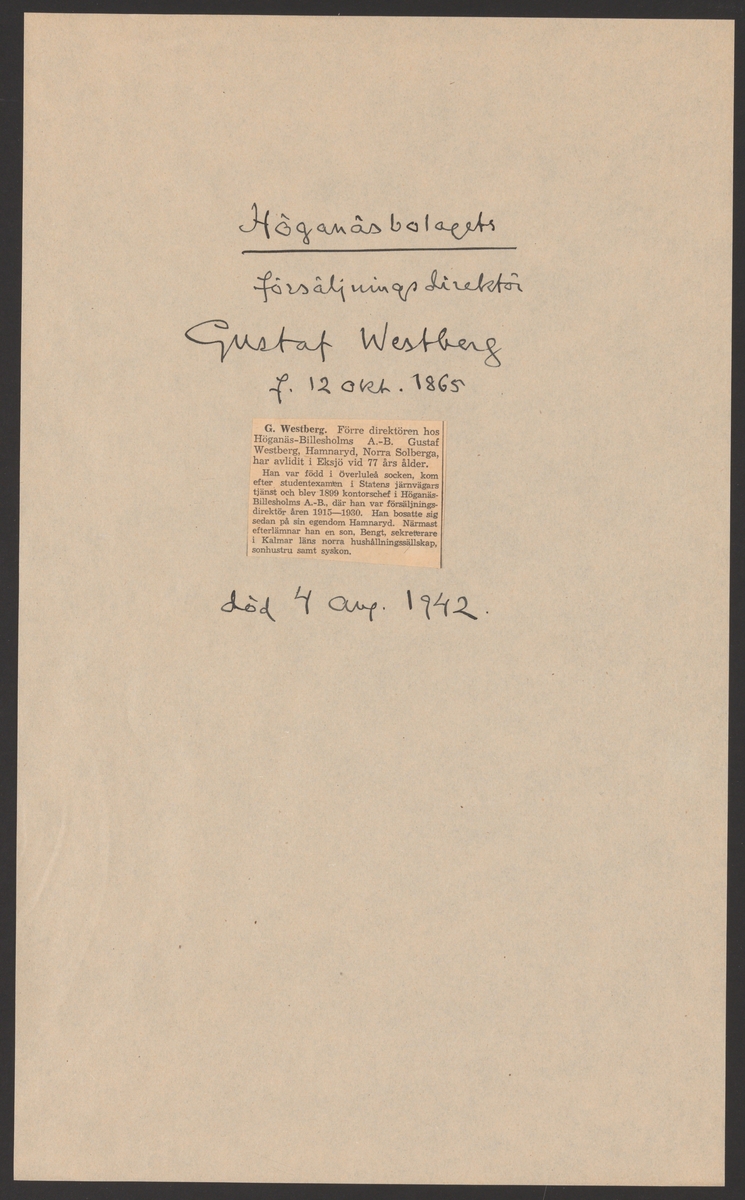 Höganäsbolagets
försäljningsdirektör
Gustaf Westberg
f. 12 okt. 1865
G. Westberg. Förre direktören hos
Höganäs-Billesholms A.-B. Gustaf
Westberg, Hamnaryd, Norra Solberga,
har avlidit i Eksjö vid 77 års ålder.
Han var född i Överluleå socken, kom
efter studentexamen i Statens järnvägars
tjänst och blev 1899 kontorschef i Höganäs-
Billesholms A.-B., där han var försäljnings-
direktör åren 1915—1930. Han bosatte sig
sedan på sin egendom Hamnaryd. Närmast
efterlämnar han en son, Bengt, sekreterare
i Kalmar läns norra hushållningssällskap,
sonhustru samt syskon.
död 4 aug. 1942.